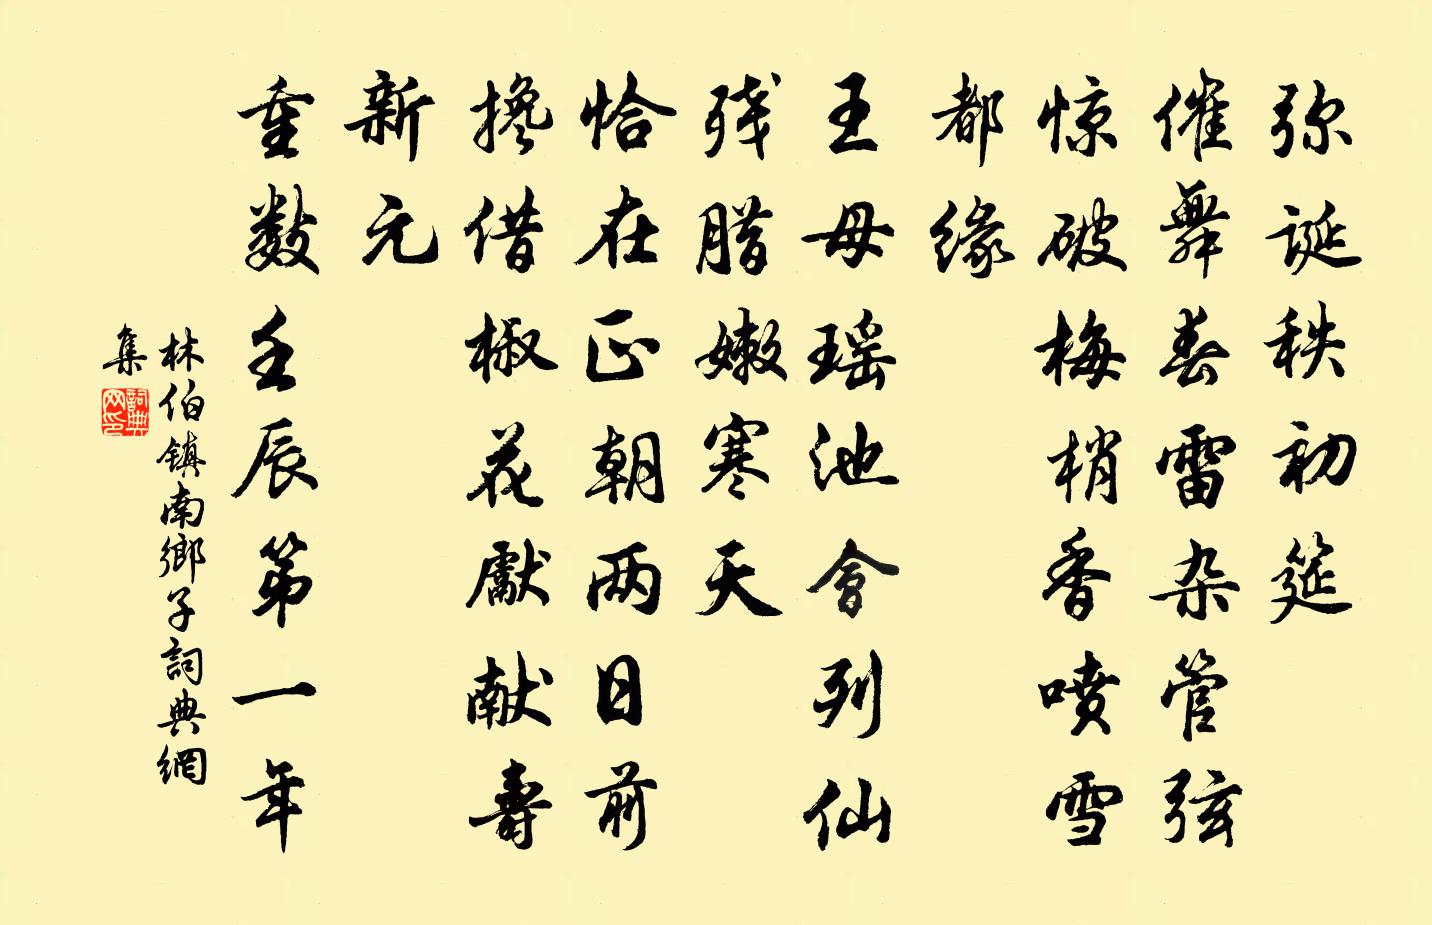 弥诞秩初筵
催舞春雷杂管弦
惊破梅梢香喷雪
都缘
王母瑶池會列仙
残腊嫩寒天
恰在正朝两日前
搀借椒花獻献壽
新元
重数壬辰第一年
林伯镇南鄉子詞典網
集
詞典
网印